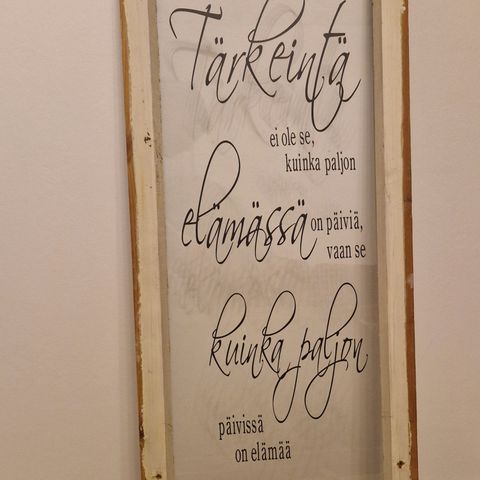 Tärkeintä
ei ole se,
kuinka paljon
elämässä on päiviä,
vaan se
kuinka paljon
päivissä
on elämää